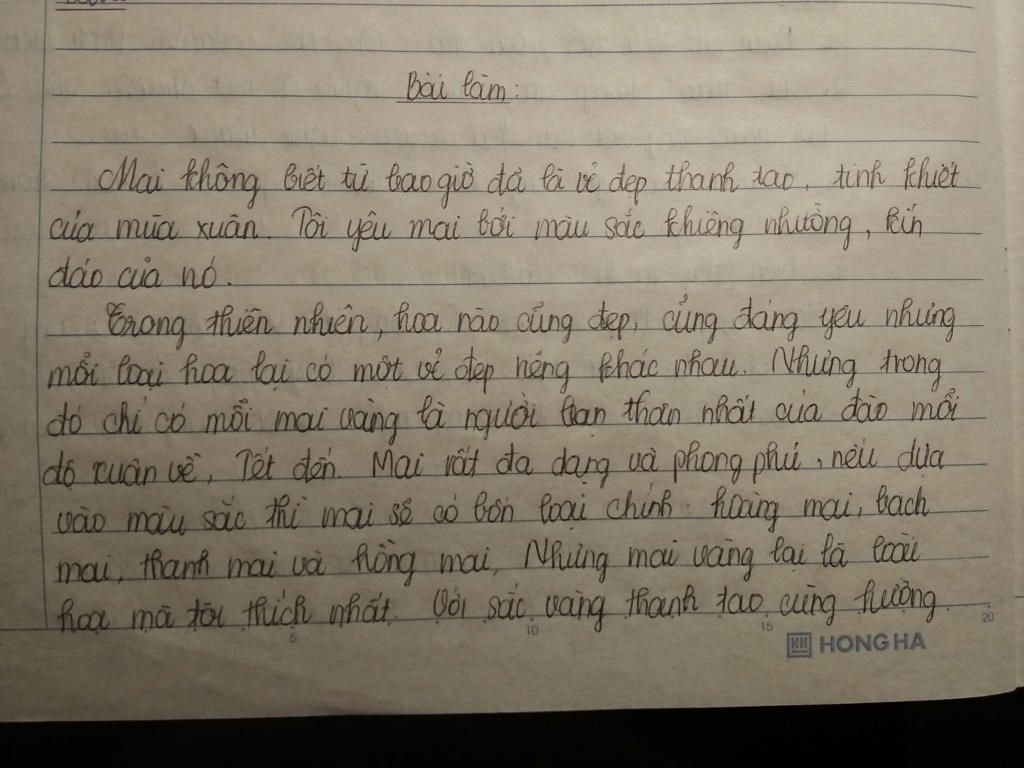 Bài làm:
Mai không biết từ bao giờ đã là vẻ đẹp thanh tao, tinh khiết
của mùa xuân. Tôi yêu mai bởi màu sắc khiêng nhường, kín
đáo của nó.
Trong thiên nhiên, hoa nào cũng đẹp, cũng đáng yêu nhưng
mỗi loại hoa lại có một vẻ đẹp riêng khác nhau. Nhưng trong
đó chỉ có mỗi mai vàng là người bạn thân nhất của đào mỗi
độ xuân về, Tết đến. Mai rất đa dạng và phong phú, nếu dựa
vào màu sắc thì mai sẽ có bốn loại chính: hoàng mai, bạch
mai, thanh mai và hồng mai. Nhưng mai vàng lại là loài
hoa mà tôi thích nhất. Với sắc vàng thanh tao cùng hường
5 10 15 20
HONG HA